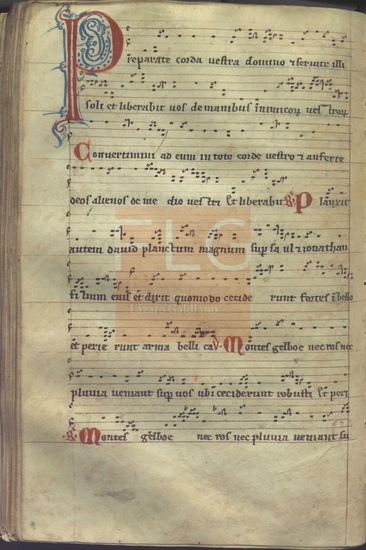 Preparate corda vestra domino ⁊ servite illi
soli et liberabit vos de manibus inimicoꝝ vestroꝝ
Convertimini ad eum in toto corde vestro ⁊ auferte
deos alienos de me dio vestri Et liberabit ℟ Planxit
autem david planctum magnum sup sa ul ⁊ ionathan
filium eius et dixit quomodo cecide runt fortes i bello
et perie runt arma belli ca ℣ Montes gelboe nec ros nec
pluvia veniant sup vos ubi ceciderunt robusti Et peri
℟ Montes gelboe nec ros nec pluvia veniant su
FLG
Lázaro Galdiano